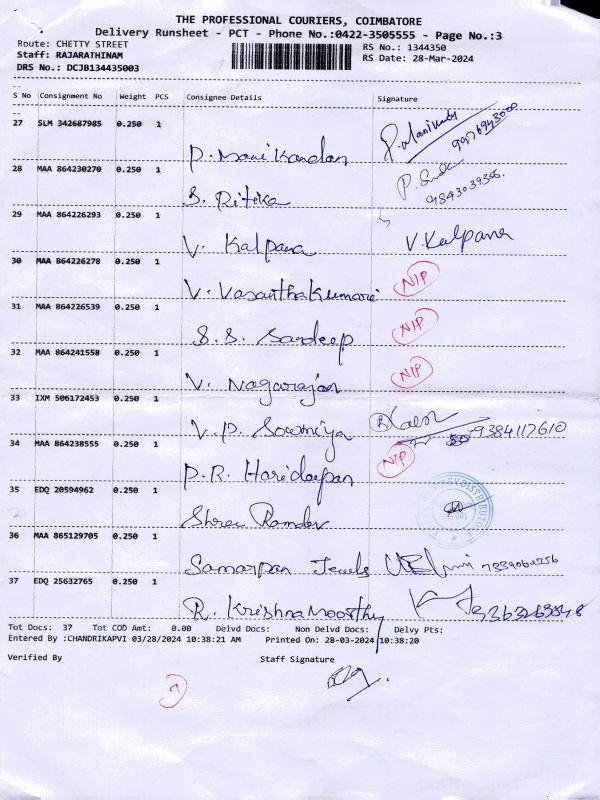 THE PROFESSIONAL COURIERS, COIMBATORE
Delivery Runsheet - PCT - Phone No.:0422-3505555 - Page No.:3
Route: CHETTY STREET
RS No.: 1344350
Staff: RAJARATHINAM
RS Date: 28-Mar-2024
DRS No.: DCJB134435003
S No Consignment No Weight PCS Consignee Details Signature
27 SLM 342687985 0.250 1
P. Manikandan
28 MAA 864230270 0.250 1
S. Ritika
9843039366.
29 MAA 864226293 0.250 1
V. Kalpana V. Kalpana
30 MAA 864226278 0.250 1
V. Vasanthakumari NIP
31 MAA 864226539 0.250 1
S. S. Sandeep NIP
32 MAA 864241558 0.250 1
V. Nagarajan NIP
33 IXM 506172453 0.250 1
V. P. Sowmiya 9384117610
34 MAA 864238555 0.250 1
P. R. NIP
35 EDQ 20594962 0.250 1
Shree Ramdev
36 MAA 865129705 0.250 1
Samarpan Jewels
37 EDQ 25632765 0.250 1
R. Krishnamoorthy
Tot Docs: 37 Tot COD Amt: 0.00 Delvd Docs: Non Delvd Docs: Delvy Pts:
Entered By :CHANDRIKAPVI 03/28/2024 10:38:21 AM Printed On: 28-03-2024 10:38:20
Verified By Staff Signature